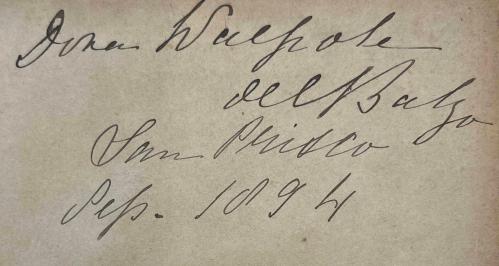 Dora Walpole
del Balzo
San Prisco
Sep. 1894